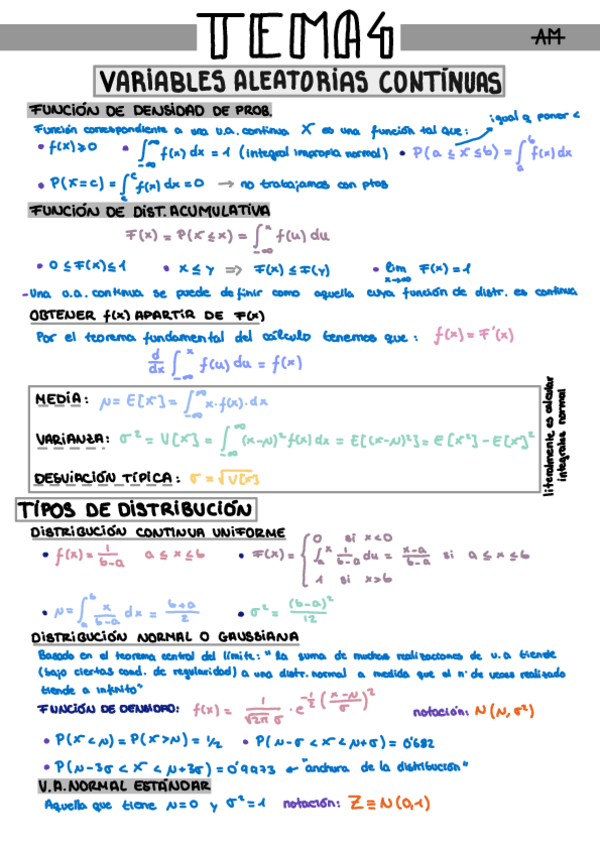 TEMA4
AM
VARIABLES ALEATORIAS CONTÍNUAS
FUNCIÓN DE DENSIDAD DE PROB.
igual q poner <
Función correspondiente a una v.a. continua X es una función tal que:
• f(x) ≥ 0 • ∫_{-∞}^{∞} f(x) dx = 1 (integral impropia normal) • P(a ≤ X ≤ b) = ∫_a^b f(x) dx
• P(X=c) = ∫_c^c f(x) dx = 0 → no trabajamos con ptos
FUNCIÓN DE DIST. ACUMULATIVA
F(x) = P(X ≤ x) = ∫_{-∞}^x f(u) du
• 0 ≤ F(x) ≤ 1 • x ≤ y ⇒ F(x) ≤ F(y) • lim_{x→∞} F(x) = 1
- Una v.a. continua se puede definir como aquella cuya función de distr. es continua
OBTENER f(x) APARTIR DE F(x)
Por el teorema fundamental del cálculo tenemos que: f(x) = F'(x)
d/dx ∫_{-∞}^x f(u) du = f(x)
MEDIA: μ = E[X] = ∫_{-∞}^{∞} x·f(x)·dx
VARIANZA: σ² = V[X] = ∫_{-∞}^{∞} (x-μ)² f(x) dx = E[(x-μ)²] = E[x²] - E[x]²
DESVIACIÓN TÍPICA: σ = √V[x]
literalmente es calcular
integrales normal
TIPOS DE DISTRIBUCIÓN
DISTRIBUCIÓN CONTINUA UNIFORME
• f(x) = 1/(b-a) a ≤ x ≤ b • F(x) = { 0 si x<0
∫_a^x 1/(b-a) du = (x-a)/(b-a) si a ≤ x ≤ b
1 si x>b
• μ = ∫_a^b x/(b-a) dx = (b+a)/2 • σ² = (b-a)²/12
DISTRIBUCIÓN NORMAL O GAUSSIANA
Basado en el teorema central del límite: "la suma de muchas realizaciones de v.a tiende
(bajo ciertas cond. de regularidad) a una distr. normal a medida que el nº de veces realizado
tiende a infinito"
FUNCIÓN DE DENSIDAD: f(x) = 1/(√2π σ) · e^{-1/2 ((x-μ)/σ)²} notación: N(μ,σ²)
• P(X<μ) = P(X>μ) = 1/2 • P(μ-σ < X < μ+σ) = 0'682
• P(μ-3σ < X < μ+3σ) = 0'9973 ← "anchura de la distribución"
V.A. NORMAL ESTÁNDAR
Aquella que tiene μ=0 y σ²=1 notación: Z ≡ N(0,1)